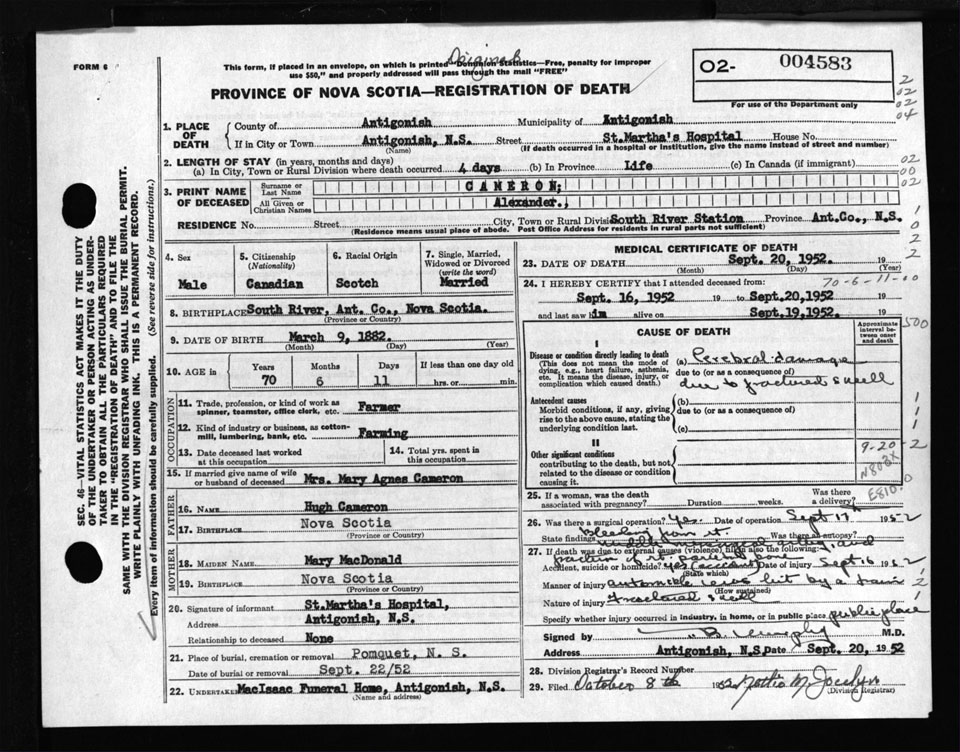 Original
FORM 6
This form, if placed in an envelope, on which is printed "Dominion Statistics—Free, penalty for improper
use $50," and properly addressed will pass through the mail "FREE"
PROVINCE OF NOVA SCOTIA—REGISTRATION OF DEATH
02- 004583
For use of the Department only
2
02
02
04
1. PLACE OF DEATH
County of Antigonish Municipality of Antigonish
If in City or Town Antigonish, N.S. Street St.Martha's Hospital House No.
(Name) (If death occurred in a hospital or institution, give the name instead of street and number)
2. LENGTH OF STAY (in years, months and days)
(a) In City, Town or Rural Division where death occurred 4 days (b) In Province Life (c) In Canada (if immigrant)
02
00
02
3. PRINT NAME OF DECEASED
Surname or Last Name CAMERON;
All Given or Christian Names Alexander.;
RESIDENCE No. Street City, Town or Rural Divisi South River Station Province Ant.Co., N.S.
(Residence means usual place of abode. Post Office Address for residents in rural parts not sufficient)
1
0
2
2
4. Sex
Male
5. Citizenship
(Nationality)
Canadian
6. Racial Origin
Scotch
7. Single, Married,
Widowed or Divorced
(write the word)
Married
8. BIRTHPLACE South River, Ant. Co., Nova Scotia.
(Province or Country)
9. DATE OF BIRTH March 9, 1882.
(Month) (Day) (Year)
10. AGE in Years Months Days If less than one day old
70 6 11 hrs. or min.
OCCUPATION
11. Trade, profession, or kind of work as
spinner, teamster, office clerk, etc. Farmer
12. Kind of industry or business, as cotton-
mill, lumbering, bank, etc. Farming
13. Date deceased last worked
at this occupation
14. Total yrs. spent in
this occupation
15. If married give name of wife
or husband of deceased Mrs. Mary Agnes Cameron
FATHER
16. NAME Hugh Cameron
17. BIRTHPLACE Nova Scotia
(Province or Country)
MOTHER
18. MAIDEN NAME Mary MacDonald
19. BIRTHPLACE Nova Scotia
(Province or Country)
20. Signature of informant St.Martha's Hospital,
Address Antigonish, N.S.
Relationship to deceased None
21. Place of burial, cremation or removal Pomquet, N. S.
Date of burial or removal Sept. 22/52
22. UNDERTAKE MacIsaac Funeral Home, Antigonish, N.S.
(Name and address)
MEDICAL CERTIFICATE OF DEATH
23. DATE OF DEATH Sept. 20, 1952. 19
(Month) (Day) (Year)
24. I HEREBY CERTIFY that I attended deceased from: 70-6-11-00
Sept. 16, 1952 19 to Sept.20,1952 19
and last saw him alive on Sept.19,1952. 19
CAUSE OF DEATH
Approximate
interval be-
tween onset
and death
500
I
Disease or condition directly leading to death
(This does not mean the mode of
dying, e.g., heart failure, asthenia,
etc. It means the disease, injury, or
complication which caused death.)
(a) Cerebral damage
due to (or as a consequence of)
due to fractured skull
Antecedent causes
Morbid conditions, if any, giving
rise to the above cause, stating the
underlying condition last.
(b)
due to (or as a consequence of)
(c)
1
1
1
II
Other significant conditions
contributing to the death, but not
related to the disease or condition
causing it.
9-20-2
N803X
E810.0
25. If a woman, was the death
associated with pregnancy? Duration weeks. Was there a delivery?
26. Was there a surgical operation? Yes. Date of operation Sept 17th 1952
State findings bleeding from rt. Was there an autopsy?
middle meningeal artery, and
27. If death was due to external causes (violence) fill in also the following:
fracture of rt. parietal bone
Accident, suicide or homicide? yes (accident) Date of injury Sept 16 1952
(State which)
Manner of injury automobile was hit by a train
(How sustained)
Nature of injury fractured skull
Specify whether injury occurred in industry, in home, or in public place public place
Signed by B. Murphy M.D.
Address Antigonish, N.S Date Sept. 20, 1952
28. Division Registrar's Record Number
29. Filed October 8th 1952 Mattie M Jocelyn
(Division Registrar)
SEC. 46—VITAL STATISTICS ACT MAKES IT THE DUTY
OF THE UNDERTAKER OR PERSON ACTING AS UNDER-
TAKER TO OBTAIN ALL THE PARTICULARS REQUIRED
IN THE "REGISTRATION OF DEATH" AND TO FILE THE
SAME WITH THE DIVISION REGISTRAR WHO SHALL ISSUE THE BURIAL PERMIT.
WRITE PLAINLY WITH UNFADING INK. THIS IS A PERMANENT RECORD.
Every item of information should be carefully supplied. (See reverse side for instructions.)